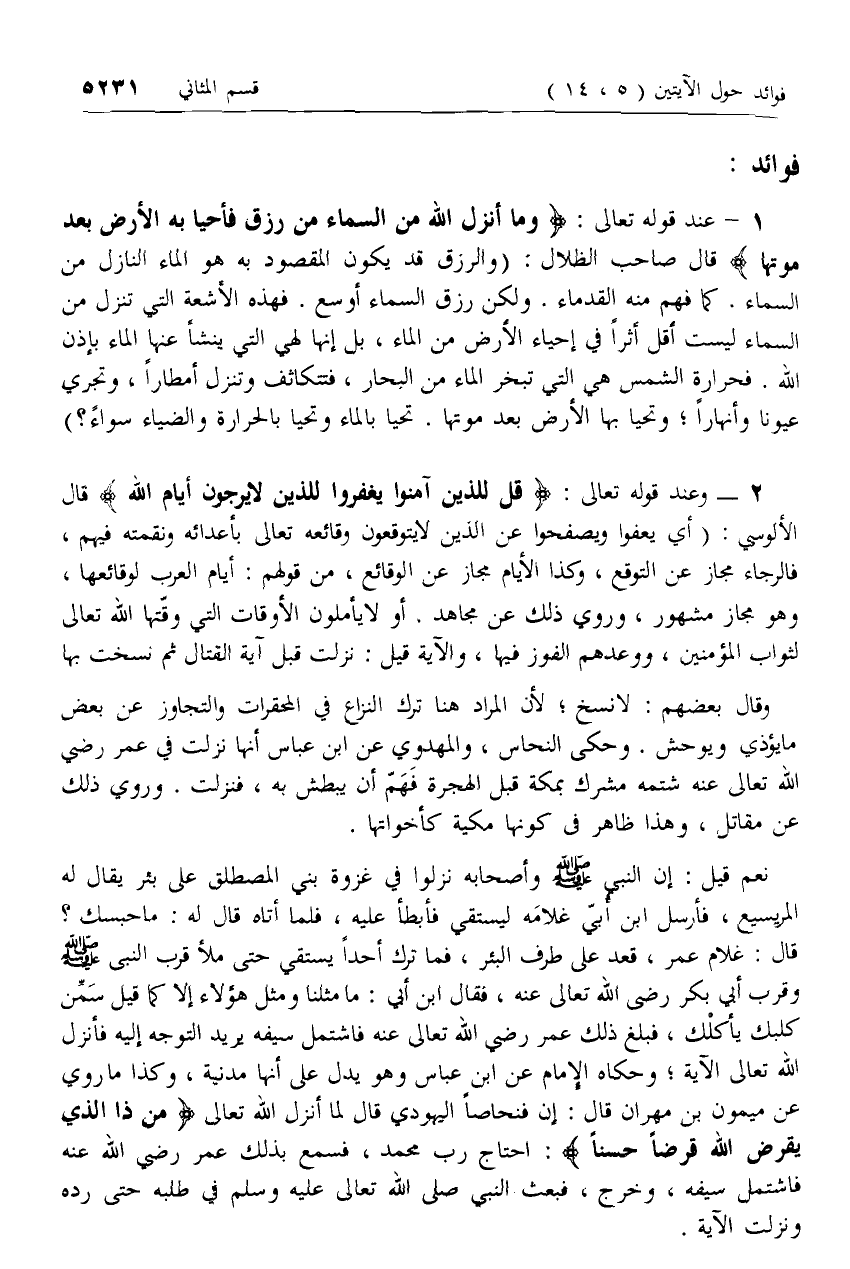 فوائد حول الآيتين ( ٥ ، ١٤ ) قسم المثاني ٥٢٣١
فوائد :
١ – عند قوله تعالى : ﴿ وما أنزل الله من السماء من رزق فأحيا به الأرض بعد
موتها ﴾ قال صاحب الظلال : (والرزق قد يكون المقصود به هو الماء النازل من
السماء . كما فهم منه القدماء . ولكن رزق السماء أوسع . فهذه الأشعة التي تنزل من
السماء ليست أقل أثراً في إحياء الأرض من الماء ، بل إنها لهي التي ينشأ عنها الماء بإذن
الله . فحرارة الشمس هي التي تبخر الماء من البحار ، فتتكاثف وتنزل أمطاراً ، وتجري
عيونا وأنهاراً ؛ وتحيا بها الأرض بعد موتها . تحيا بالماء وتحيا بالحرارة والضياء سواءً؟)
٢ ــ وعند قوله تعالى : ﴿ قل للذين آمنوا يغفروا للذين لايرجون أيام الله ﴾ قال
الألوسي : ( أي يعفوا ويصفحوا عن الذين لايتوقعون وقائعه تعالى بأعدائه ونقمته فيهم ،
فالرجاء مجاز عن التوقع ، وكذا الأيام مجاز عن الوقائع ، من قولهم : أيام العرب لوقائعها ،
وهو مجاز مشهور ، وروي ذلك عن مجاهد . أو لايأملون الأوقات التي وقّتها الله تعالى
لثواب المؤمنين ، ووعدهم الفوز فيها ، والآية قيل : نزلت قبل آية القتال ثم نسخت بها
وقال بعضهم : لانسخ ؛ لأن المراد هنا ترك النزاع في المحقرات والتجاوز عن بعض
مايؤذي ويوحش . وحكى النحاس ، والمهدوي عن ابن عباس أنها نزلت في عمر رضي
الله تعالى عنه شتمه مشرك بمكة قبل الهجرة فَهَمّ أن يبطش به ، فنزلت . وروي ذلك
عن مقاتل ، وهذا ظاهر فى كونها مكية كأخواتها .
نعم قيل : إن النبي ﷺ وأصحابه نزلوا في غزوة بني المصطلق على بئر يقال له
المريسيع ، فأرسل ابن أُبيّ غلامَه ليستقي فأبطأ عليه ، فلما أتاه قال له : ماحبسك ؟
قال : غلام عمر ، قعد على طرف البئر ، فما ترك أحداً يستقي حتى ملأ قرب النبى ﷺ
وقرب أبي بكر رضى الله تعالى عنه ، فقال ابن أبي : مامثلنا ومثل هؤلاء إلا كما قيل سَمِّن
كلبك يأكلْك ، فبلغ ذلك عمر رضي الله تعالى عنه فاشتمل سيفه يريد التوجه إليه فأنزل
الله تعالى الآية ؛ وحكاه الإمام عن ابن عباس وهو يدل على أنها مدنية ، وكذا ماروي
عن ميمون بن مهران قال : إن فنحاصاً اليهودي قال لما أنزل الله تعالى ﴿ من ذا الذي
يقرض الله قرضاً حسناً ﴾ : احتاج رب محمد ، فسمع بذلك عمر رضي الله عنه
فاشتمل سيفه ، وخرج ، فبعث النبي صلى الله تعالى عليه وسلم في طلبه حتى رده
ونزلت الآية .